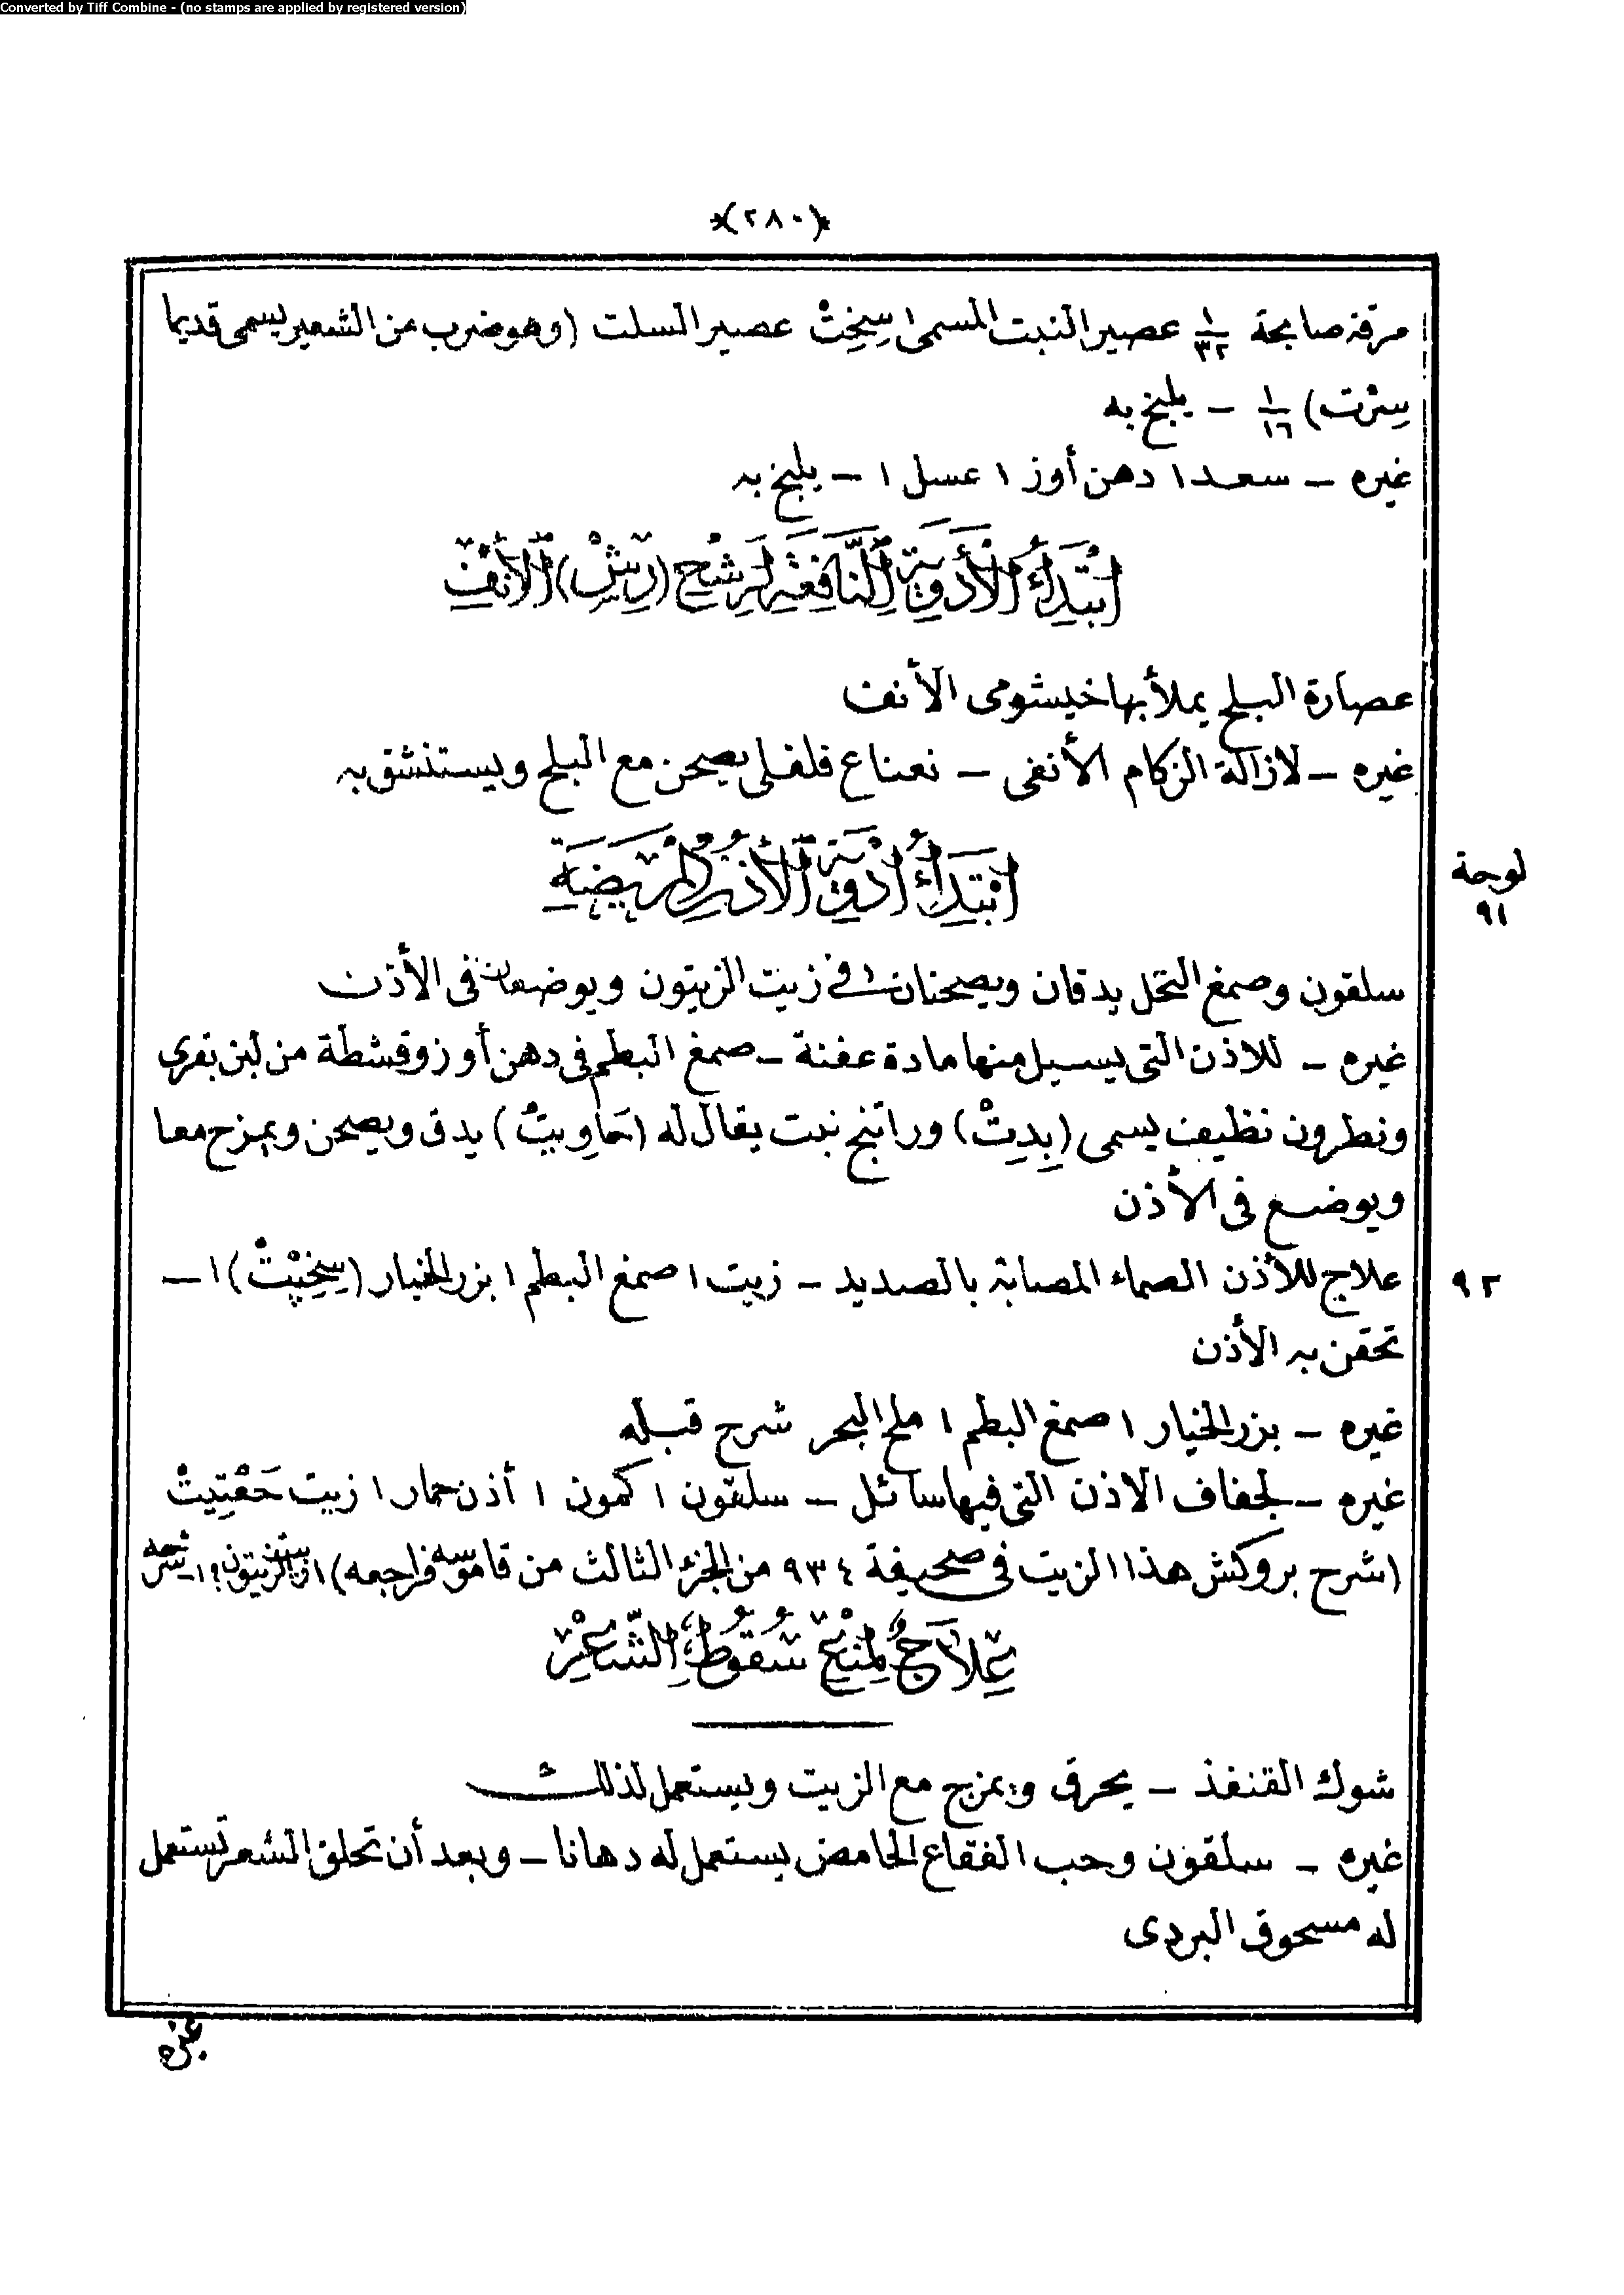 Converted by Tiff Combine - (no stamps are applied by registered version)
*(٢٨٠)*
مرقة صابحة ١/٣٢ عصير النبت المسمى اسِخِتْ عصير السلت (وهو ضرب من الشعير يسمى قديما
سِرْت) ١/١٦ - يلبخ به
غيره - سعد ١ دهن أوز ١ عسل ١ - يلبخ به
ابْتِدَاءُ الأَدْوِيَةِ النَّافِعَةِ لِرَشْحِ (رِشْ) الأَنْفِ
عصارة البلح يملأ بها خيشومى الأنف
غيره - لازالة الزكام الأنفى - نعناع فلفلى يصحن مع البلح ويستنشق به
لوحة
٩١
ابْتِدَاءُ أَدْوِيَةِ الأُذُنِ المَرِيضَةِ
سلقون وصمغ النخل يدقان ويصحنان فى زيت الزيتون ويوضعان فى الأذن
غيره - للاذن التى يسيل منها مادة عفنة - صمغ البطم فى دهن أوز وقشطة من لبن بقرى
ونطرون نظيف يسمى (بِدِتْ) وراتنج نبت يقال له (حَمَاوِيتْ) يدق ويصحن ويمزج معا
ويوضع فى الأذن
علاج للأذن الصماء المصابة بالصديد - زيت ١ صمغ البطم ١ بزر الخيار (سِخِپْتْ) ١ -
٩٢
تحقن به الأذن
غيره - بزر الخيار ١ صمغ البطم ١ ملح البحر شرح قبله
غيره - لجفاف الاذن التى فيها سائل - سلقون ١ كمون ١ أذن حمار ١ زيت حَقْتِيتْ
(شرح بروكش هذا الزيت فى صحيفة ٩٣٤ من الجزء الثالث من قاموسه فراجعه) ١ زيت الزيتون ؟ ١ - شرحه
عِلَاجٌ لِمَنْعِ سُقُوطِ الشَّعْرِ
شوك القنفذ - يحرق ويمزج مع الزيت ويستعمل لذلك
غيره - سلقون وحب الفقاع الحامض يستعمل له دهانا - وبعد أن تحلق الشعر تستعمل
له مسحوق البردى
غيره